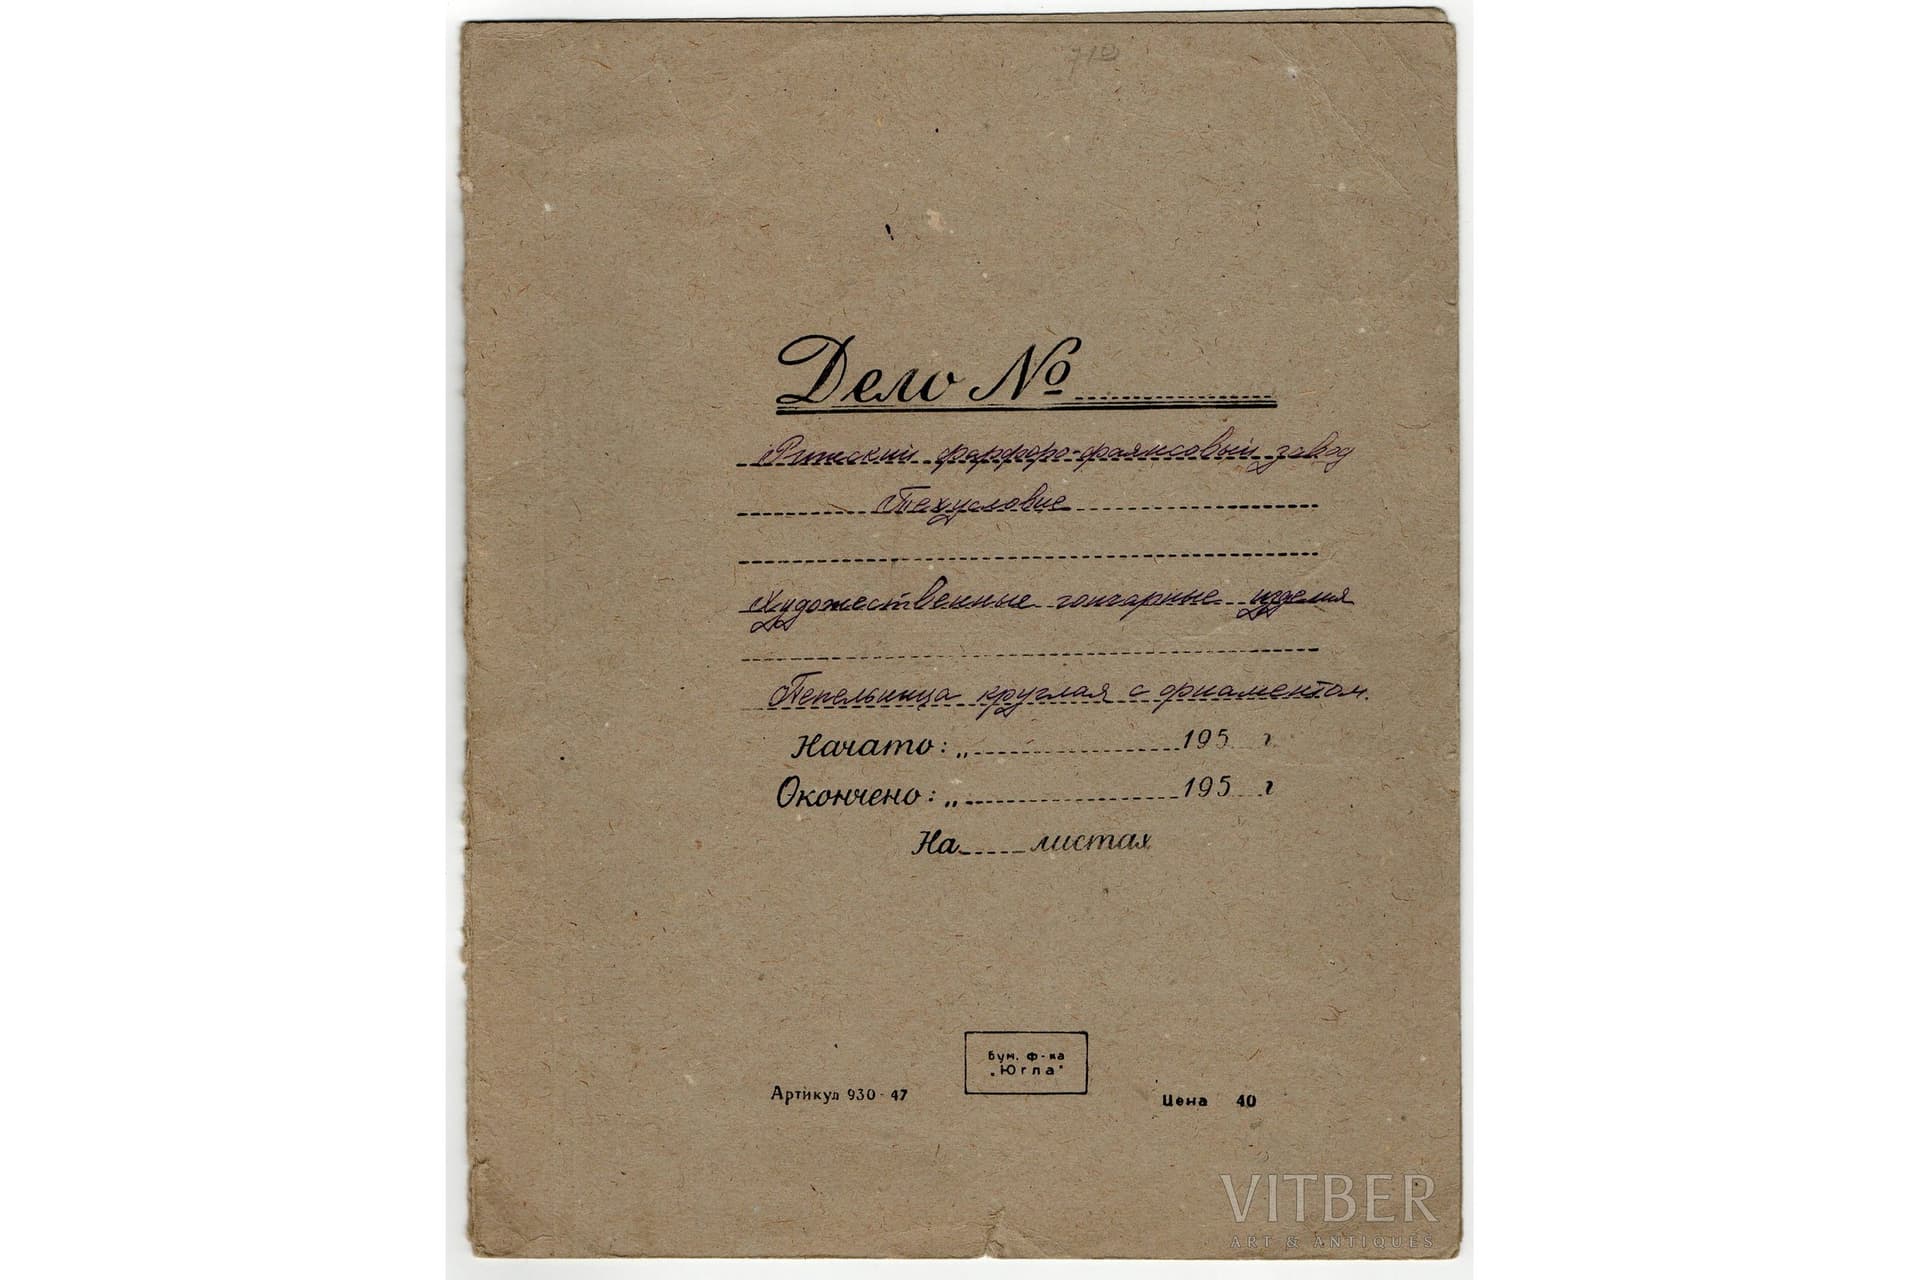 710
Дело №
Рижский фарфоро-фаянсовый завод
Техусловие
Художественные гончарные изделия
Пепельница круглая с орнаментом.
Начато: „ 195 г
Окончено: „ 195 г
На листах
Бум. ф-ка
„Югла"
Артикул 930-47
Цена 40
VITBER
ART & ANTIQUES